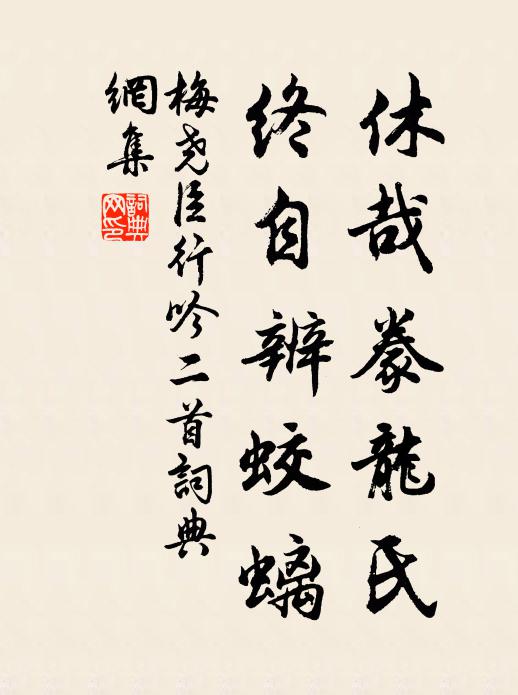 休哉豢龍氏
終自辨蛟螭
梅堯臣行吟二首詞典
網集
詞典
网印